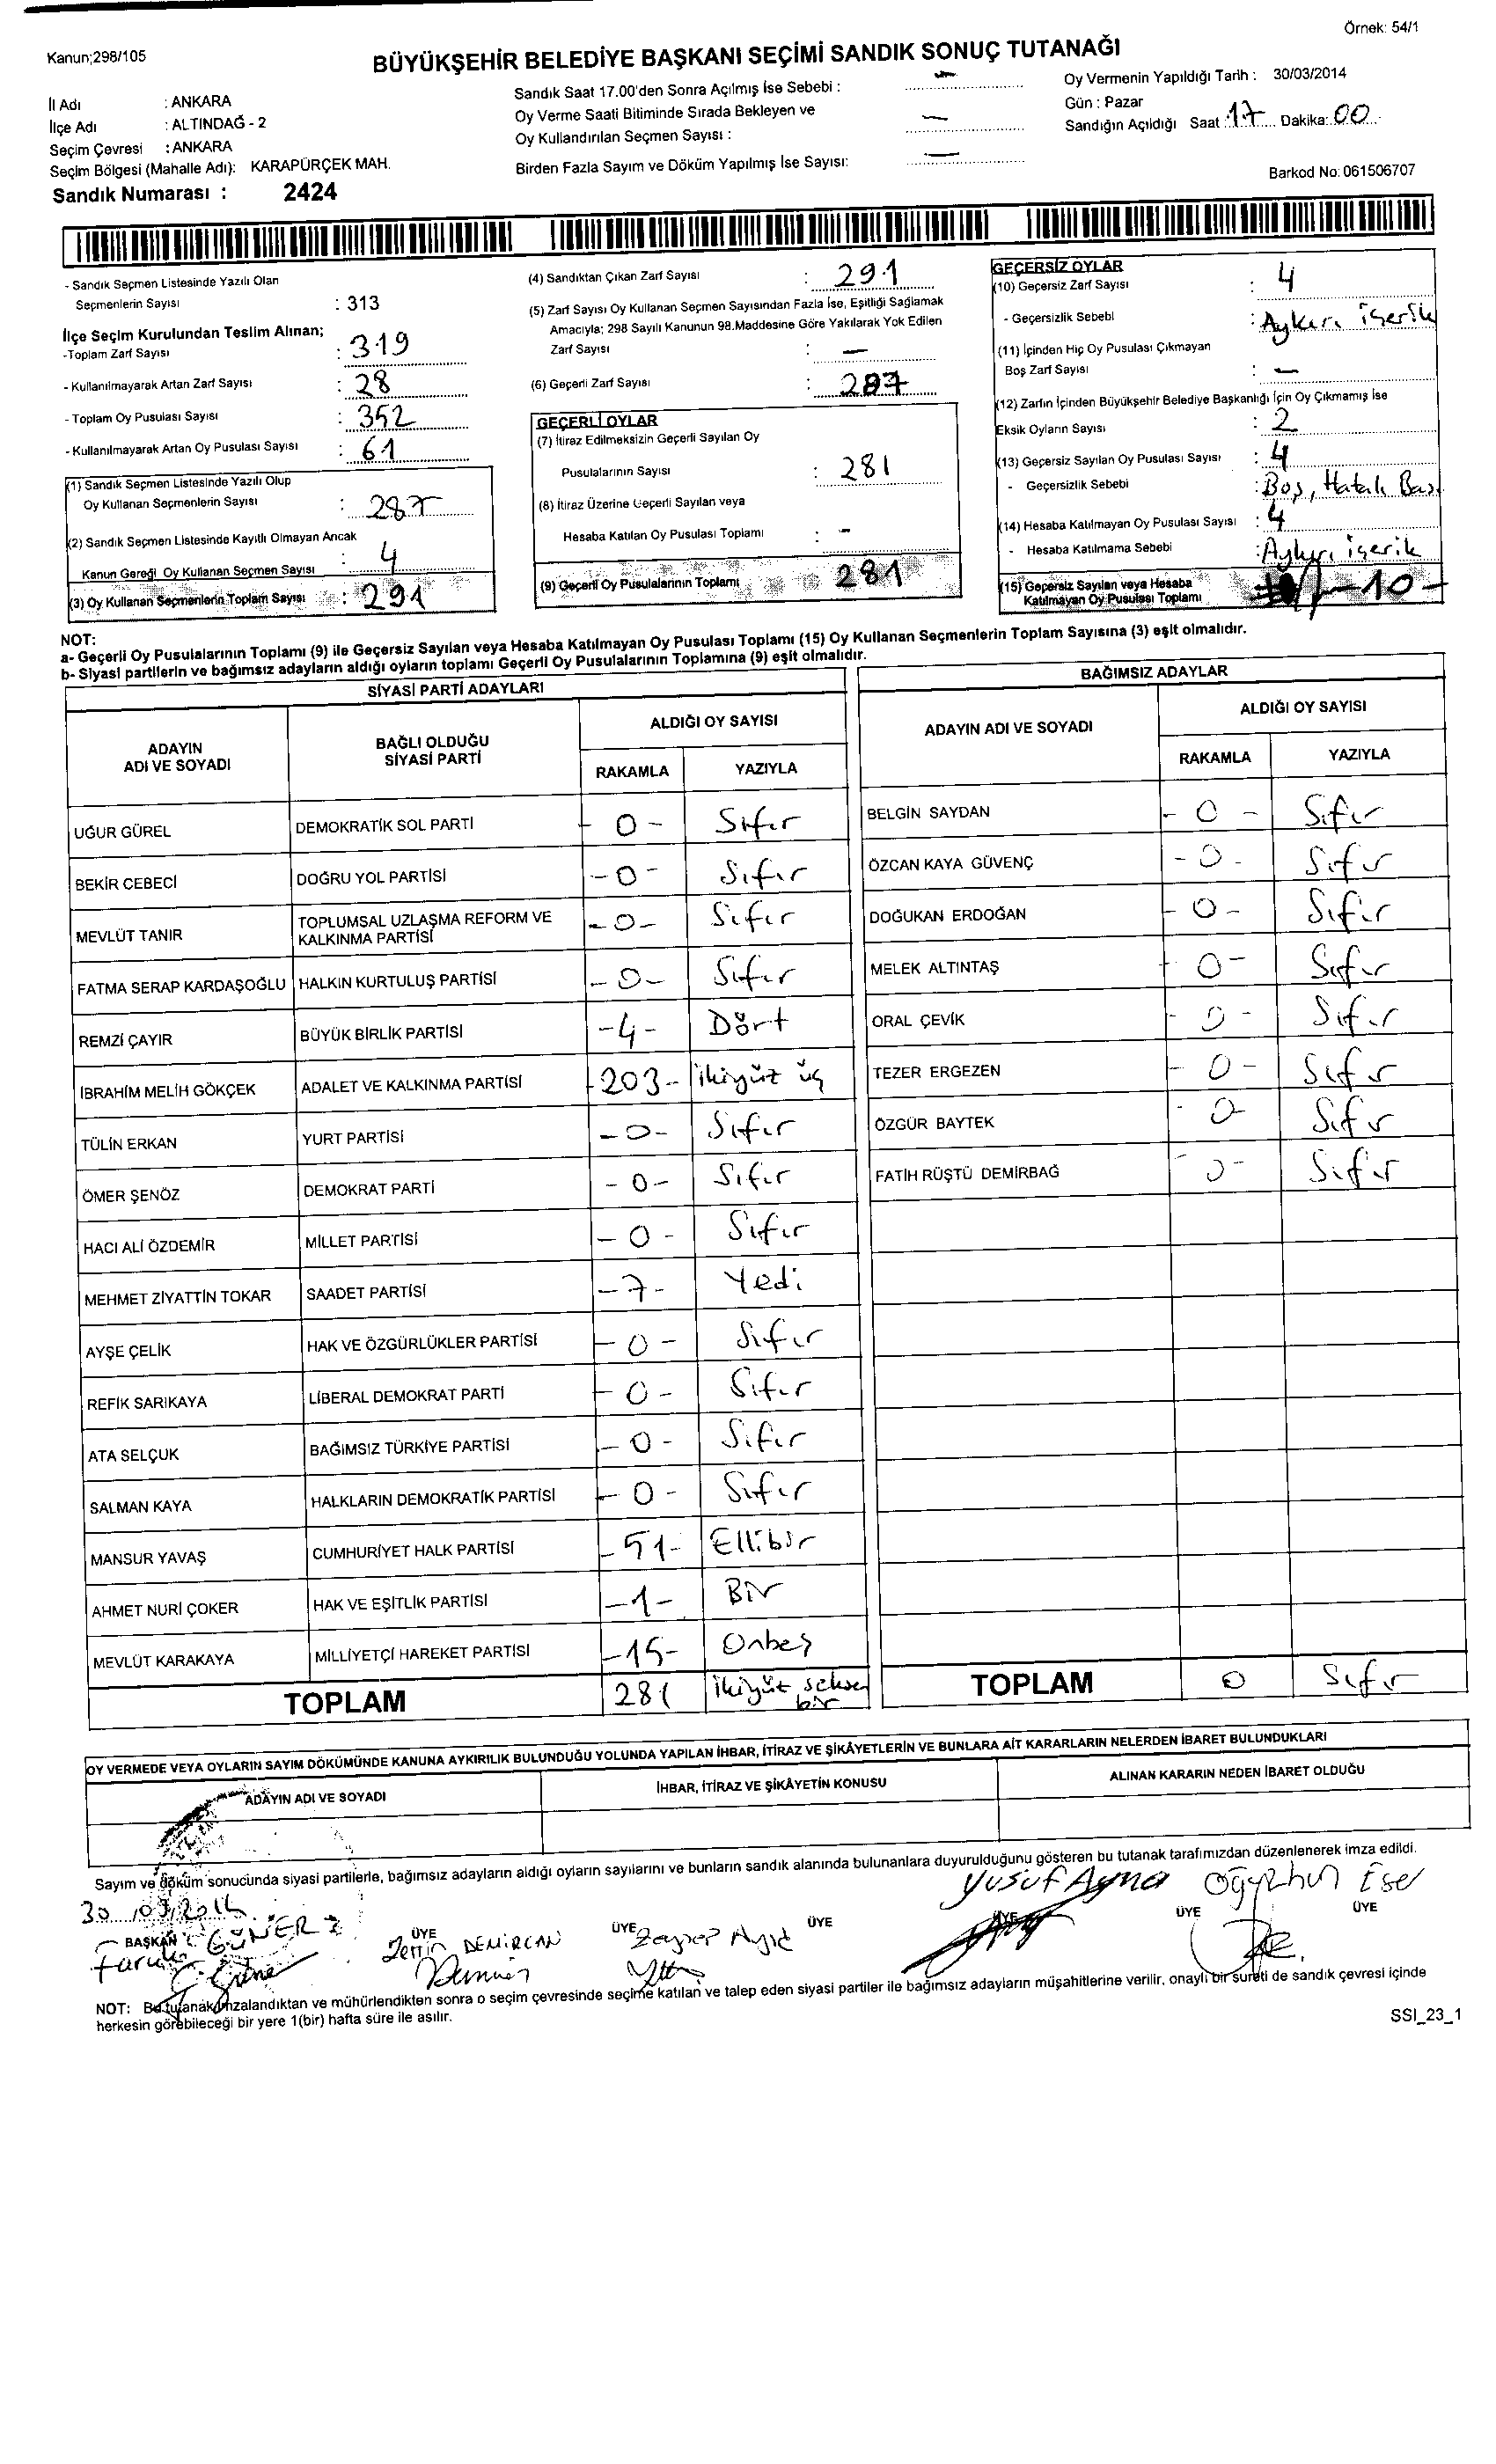 Örnek: 54/1
Kanun;298/105
BÜYÜKŞEHİR BELEDİYE BAŞKANI SEÇİMİ SANDIK SONUÇ TUTANAĞI
İl Adı : ANKARA
İlçe Adı : ALTINDAĞ - 2
Seçim Çevresi : ANKARA
Seçim Bölgesi (Mahalle Adı): KARAPÜRÇEK MAH.
Sandık Numarası : 2424
Sandık Saat 17.00'den Sonra Açılmış İse Sebebi : —
Oy Verme Saati Bitiminde Sırada Bekleyen ve
Oy Kullandırılan Seçmen Sayısı : —
Birden Fazla Sayım ve Döküm Yapılmış İse Sayısı: —
Oy Vermenin Yapıldığı Tarih : 30/03/2014
Gün : Pazar
Sandığın Açıldığı Saat : 17 Dakika: 00
Barkod No: 061506707
- Sandık Seçmen Listesinde Yazılı Olan
Seçmenlerin Sayısı : 313
İlçe Seçim Kurulundan Teslim Alınan;
-Toplam Zarf Sayısı : 319
- Kullanılmayarak Artan Zarf Sayısı : 28
- Toplam Oy Pusulası Sayısı : 352
- Kullanılmayarak Artan Oy Pusulası Sayısı : 61
(1) Sandık Seçmen Listesinde Yazılı Olup
Oy Kullanan Seçmenlerin Sayısı : 287
(2) Sandık Seçmen Listesinde Kayıtlı Olmayan Ancak
Kanun Gereği Oy Kullanan Seçmen Sayısı : 4
(3) Oy Kullanan Seçmenlerin Toplam Sayısı : 291
(4) Sandıktan Çıkan Zarf Sayısı : 291
(5) Zarf Sayısı Oy Kullanan Seçmen Sayısından Fazla İse, Eşitliği Sağlamak
Amacıyla; 298 Sayılı Kanunun 98.Maddesine Göre Yakılarak Yok Edilen
Zarf Sayısı : —
(6) Geçerli Zarf Sayısı : 287
GEÇERLİ OYLAR
(7) İtiraz Edilmeksizin Geçerli Sayılan Oy
Pusulalarının Sayısı : 281
(8) İtiraz Üzerine Geçerli Sayılan veya
Hesaba Katılan Oy Pusulası Toplamı : -
(9) Geçerli Oy Pusulalarının Toplamı : 281
GEÇERSİZ OYLAR
(10) Geçersiz Zarf Sayısı : 4
- Geçersizlik Sebebi : Aykırı içerik
(11) İçinden Hiç Oy Pusulası Çıkmayan
Boş Zarf Sayısı : —
(12) Zarfın İçinden Büyükşehir Belediye Başkanlığı İçin Oy Çıkmamış İse
Eksik Oyların Sayısı : 2
(13) Geçersiz Sayılan Oy Pusulası Sayısı : 4
- Geçersizlik Sebebi : Boş, Hatalı Bas
(14) Hesaba Katılmayan Oy Pusulası Sayısı : 4
- Hesaba Katılmama Sebebi : Aykırı içerik
(15) Geçersiz Sayılan veya Hesaba
Katılmayan Oy Pusulası Toplamı -10-
NOT:
a- Geçerli Oy Pusulalarının Toplamı (9) ile Geçersiz Sayılan veya Hesaba Katılmayan Oy Pusulası Toplamı (15) Oy Kullanan Seçmenlerin Toplam Sayısına (3) eşit olmalıdır.
b- Siyasi partilerin ve bağımsız adayların aldığı oyların toplamı Geçerli Oy Pusulalarının Toplamına (9) eşit olmalıdır.
SİYASİ PARTİ ADAYLARI
ADAYIN ADI VE SOYADI BAĞLI OLDUĞU SİYASİ PARTİ ALDIĞI OY SAYISI
RAKAMLA YAZIYLA
UĞUR GÜREL DEMOKRATİK SOL PARTİ - 0 - Sıfır
BEKİR CEBECİ DOĞRU YOL PARTİSİ - 0 - Sıfır
MEVLÜT TANIR TOPLUMSAL UZLAŞMA REFORM VE KALKINMA PARTİSİ - 0 - Sıfır
FATMA SERAP KARDAŞOĞLU HALKIN KURTULUŞ PARTİSİ - 0 - Sıfır
REMZİ ÇAYIR BÜYÜK BİRLİK PARTİSİ - 4 - Dört
İBRAHİM MELİH GÖKÇEK ADALET VE KALKINMA PARTİSİ - 203 - İkiyüz üç
TÜLİN ERKAN YURT PARTİSİ - 0 - Sıfır
ÖMER ŞENÖZ DEMOKRAT PARTİ - 0 - Sıfır
HACI ALİ ÖZDEMİR MİLLET PARTİSİ - 0 - Sıfır
MEHMET ZİYATTİN TOKAR SAADET PARTİSİ - 7 - Yedi
AYŞE ÇELİK HAK VE ÖZGÜRLÜKLER PARTİSİ - 0 - Sıfır
REFİK SARIKAYA LİBERAL DEMOKRAT PARTİ - 0 - Sıfır
ATA SELÇUK BAĞIMSIZ TÜRKİYE PARTİSİ - 0 - Sıfır
SALMAN KAYA HALKLARIN DEMOKRATİK PARTİSİ - 0 - Sıfır
MANSUR YAVAŞ CUMHURİYET HALK PARTİSİ - 51 - Ellibir
AHMET NURİ ÇOKER HAK VE EŞİTLİK PARTİSİ - 1 - Bir
MEVLÜT KARAKAYA MİLLİYETÇİ HAREKET PARTİSİ - 15 - Onbeş
TOPLAM 281 İkiyüz seksen bir
BAĞIMSIZ ADAYLAR
ADAYIN ADI VE SOYADI ALDIĞI OY SAYISI
RAKAMLA YAZIYLA
BELGİN SAYDAN - 0 - Sıfır
ÖZCAN KAYA GÜVENÇ - 0 - Sıfır
DOĞUKAN ERDOĞAN - 0 - Sıfır
MELEK ALTINTAŞ - 0 - Sıfır
ORAL ÇEVİK - 0 - Sıfır
TEZER ERGEZEN - 0 - Sıfır
ÖZGÜR BAYTEK - 0 - Sıfır
FATİH RÜŞTÜ DEMİRBAĞ - 0 - Sıfır
TOPLAM 0 Sıfır
OY VERMEDE VEYA OYLARIN SAYIM DÖKÜMÜNDE KANUNA AYKIRILIK BULUNDUĞU YOLUNDA YAPILAN İHBAR, İTİRAZ VE ŞİKÂYETLERİN VE BUNLARA AİT KARARLARIN NELERDEN İBARET BULUNDUKLARI
ADAYIN ADI VE SOYADI İHBAR, İTİRAZ VE ŞİKÂYETİN KONUSU ALINAN KARARIN NEDEN İBARET OLDUĞU
Sayım ve döküm sonucunda siyasi partilerle, bağımsız adayların aldığı oyların sayılarını ve bunların sandık alanında bulunanlara duyurulduğunu gösteren bu tutanak tarafımızdan düzenlenerek imza edildi.
30/03/2014
BAŞKAN ÜYE ÜYE ÜYE ÜYE ÜYE ÜYE
Faruk GÜNER
DEMİRCAN
Zeynep
Yusuf
Oğuzhan
NOT: Bu tutanak imzalandıktan ve mühürlendikten sonra o seçim çevresinde seçime katılan ve talep eden siyasi partiler ile bağımsız adayların müşahitlerine verilir, onaylı bir sureti de sandık çevresi içinde
herkesin görebileceği bir yere 1(bir) hafta süre ile asılır.
SSI_23_1